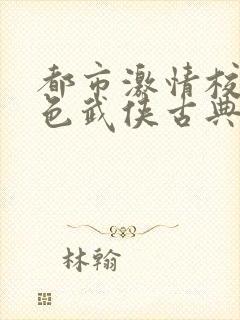 都市激情校
色武侠古典
林翰